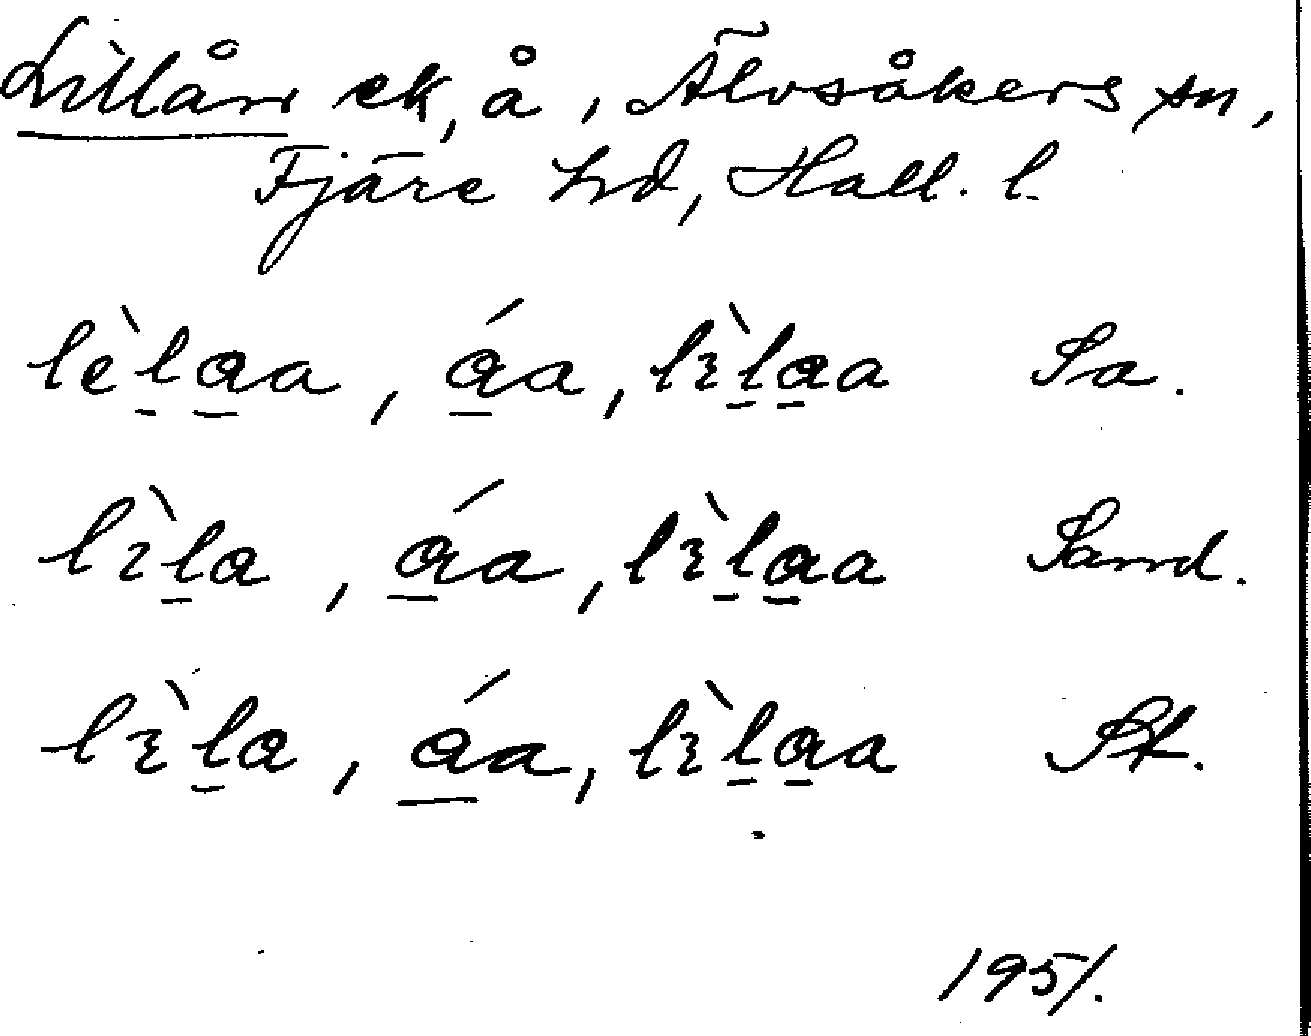 Lillån ek, å, Älvsåkers sn,
Fjäre hd, Hall. l.
lèl̠a̠a, á̠a, lìl̠a̠a Sa.
lìl̠a, á̠a, lìl̠a̠a Sand.
lìl̠a, á̠a, lìl̠a̠a St.
1951.